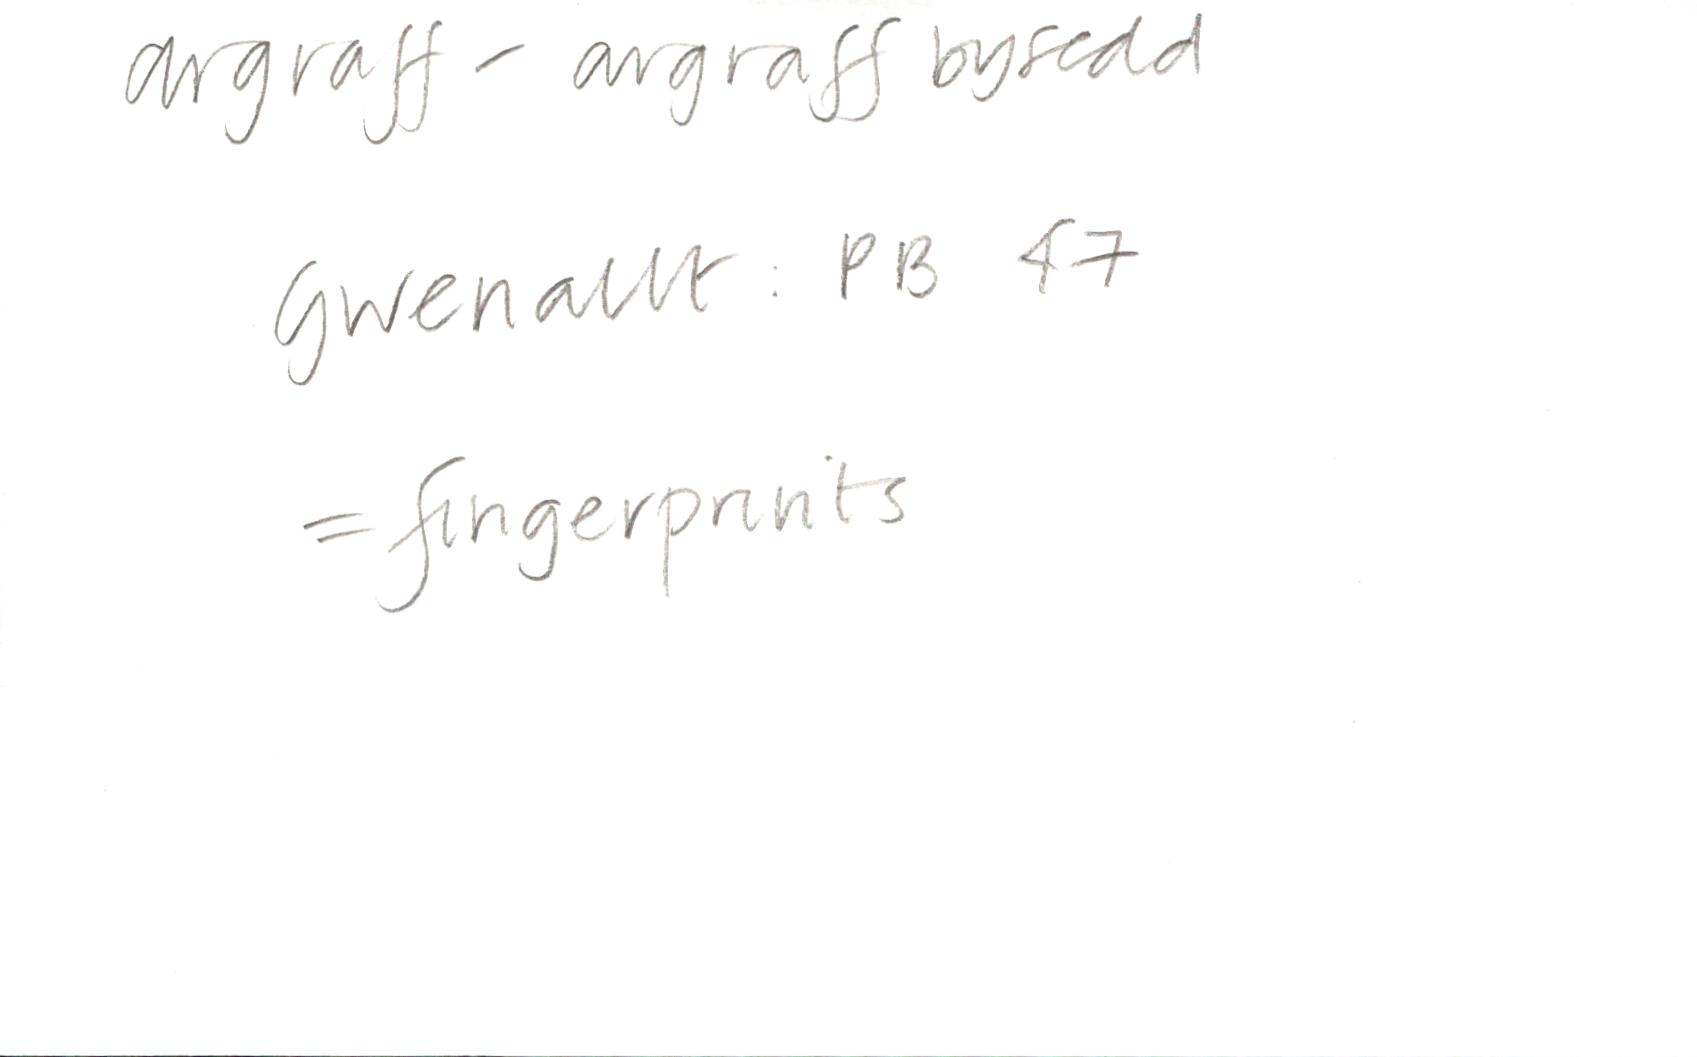 argraff - argraff bysedd
Gwenallt: PB 47
= fingerprints